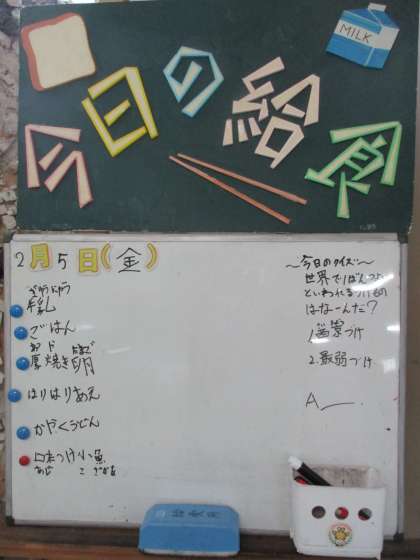 今日の給食
MILK
2月5日(金)
ぎゅうにゅう
牛乳
ごはん
あつ やき たまご
厚焼き卵
はりはりあえ
かやくうどん
味つけ小魚
あじ こ ざかな
～今日のクイズ～
世界でいちばん
といわれるつけもの
はなーんだ?
2.最弱づけ
A